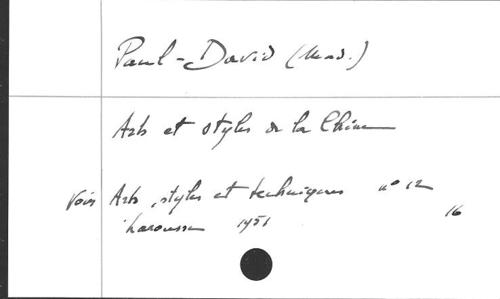 Paul-David (Mad.)
Arts et styles de la Chine
Voir Arts, styles et techniques n° 12
Larousse 1951
16